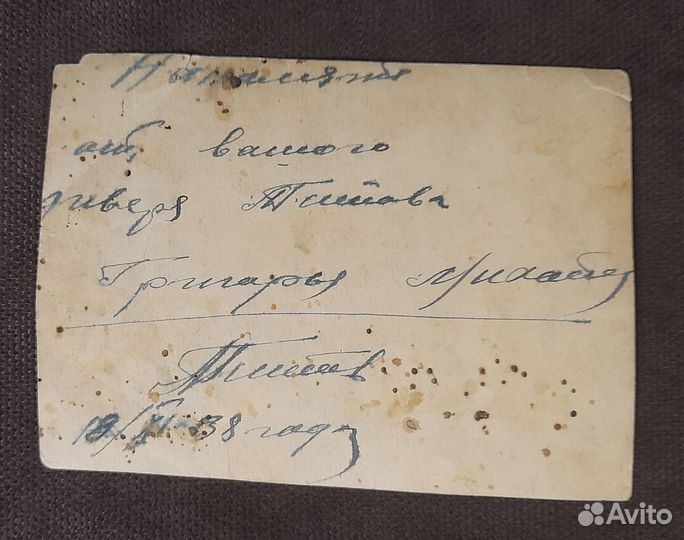 На память
от вашого
диверя Титова
Григорья Михайл
Титов
13/XI-38 году
Avito